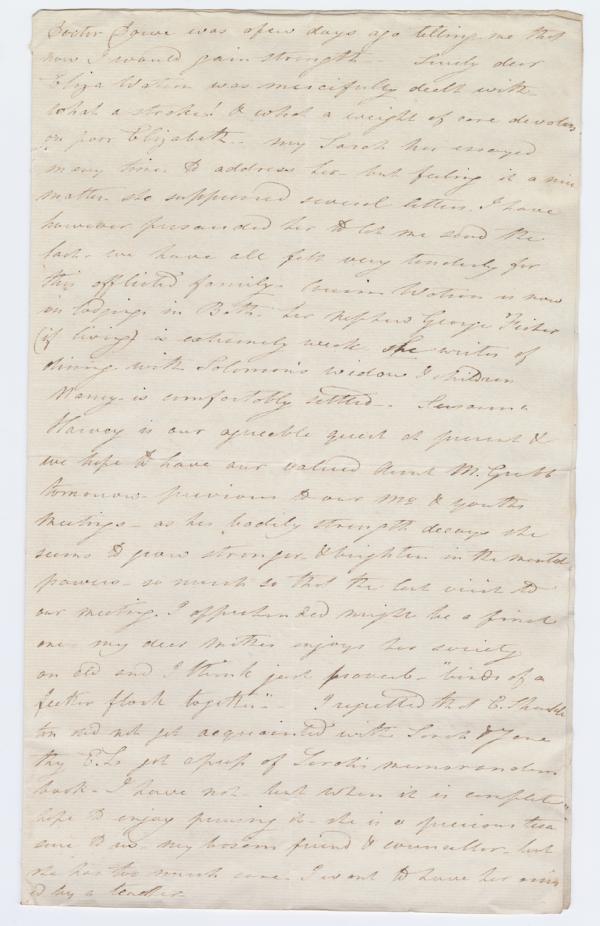 Doctor Jowe was a few days ago telling me that
now I would gain strength - Surely dear
Eliza Watson was mercifully dealt with
What a stroke! & what a weight of care devolves
on poor Elizabeth - my Sarah has essayed
many times to address her - but feeling it a nice
matter she suppressed several letters. I have
however persuaded her to let me send the
last - we have all felt very tenderly for
this afflicted family. Cousin Watson is now
in lodgings in Bath - her nephew George Fisher
(if living) is extremely weak She writes of
dining with Solomon's widow & children
Nancy is comfortably settled - Susanna
Harvey is our agreeable guest at present &
we hope to have our valued Aunt M. Grubb
tomorrow - previous to our Mo & youths
Meetings - as her bodily strength decays she
seems to grow stronger & brighten in the mental
powers - so much so that the last visit to
our meeting I apprehended might be a final
one - my dear mother enjoys her society
an old and I think just proverb - "birds of a
feather flock together" - I regretted that E. Shackle
ton did not get acquainted with Sarah & Jane
thy E. L. got a peep of Sarah's memorandum
book - I have not - but when it is complete
hope to enjoy perusing it - she is a precious trea
sure to us - my bosom friend & counsellor - but
she has too much care - I want to have her
by a teacher -